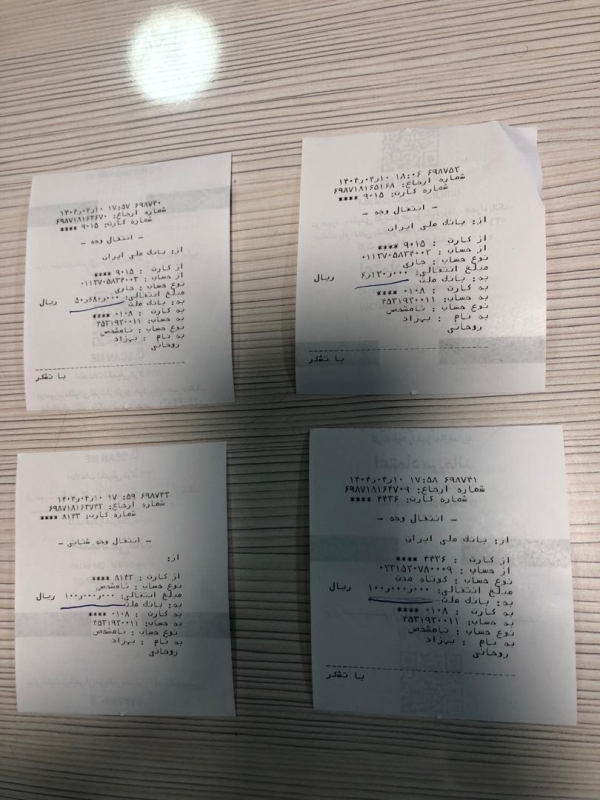 ۱۴۰۴٫۰۴٫۱۰ ۱۷:۵۷ ۶۹۸۷۴۰
شماره ارجاع: ۶۹۸۷۱۸۱۶۴۶۷۰
شماره کارت: ۹۰۱۵ ****
- انتقال وجه -
از: بانک ملی ایران
از کارت : ۹۰۱۵ ****
از حساب : ۰۱۱۳۷۰۵۸۳۴۰۰۳
نوع حساب: جاری
مبلغ انتقالی: ۵۰٫۶۸۰٫۰۰۰ ریال
به: بانک ملت
به کارت : ۰۱۰۸ ****
به حساب: ۳۵۳۱۹۲۰۰۱۱
نوع حساب: نامشخص
به نام : بهزاد
روحانی
با تشکر
۱۴۰۴٫۰۴٫۱۰ ۱۸:۰۶ ۶۹۸۷۵۲
شماره ارجاع: ۶۹۸۷۱۸۱۶۵۱۶۸
شماره کارت: ۹۰۱۵ ****
- انتقال وجه -
از: بانک ملی ایران
از کارت : ۹۰۱۵ ****
از حساب : ۰۱۱۳۷۰۵۸۳۴۰۰۳
نوع حساب: جاری
مبلغ انتقالی: ۶٫۱۲۰٫۰۰۰ ریال
به: بانک ملت
به کارت : ۰۱۰۸ ****
به حساب: ۳۵۳۱۹۲۰۰۱۱
نوع حساب: نامشخص
به نام : بهزاد
روحانی
با تشکر
۱۴۰۴٫۰۴٫۱۰ ۱۷:۵۹
شماره ارجاع:
شماره کارت: ****
- انتقال وجه شتابی -
از:
از کارت : ****
نوع حساب: نامشخص
مبلغ انتقالی: ۱۰۰٫۰۰۰٫۰۰۰ ریال
به: بانک ملت
به کارت : ۰۱۰۸ ****
به حساب: ۳۵۳۱۹۲۰۰۱۱
نوع حساب: نامشخص
به نام : بهزاد
روحانی
۱۴۰۴٫۰۴٫۱۰ ۱۷:۵۸ ۶۹۸۷۴۱
شماره ارجاع: ۶۹۸۷۱۸۱۶۴۷۰۹
شماره کارت: ۴۴۳۶ ****
- انتقال وجه -
از: بانک ملی ایران
از کارت : ۴۴۳۶ ****
از حساب :
نوع حساب: کوتاه مدت
مبلغ انتقالی: ۱۰۰٫۰۰۰٫۰۰۰ ریال
به: بانک ملت
به کارت : ۰۱۰۸ ****
به حساب: ۳۵۳۱۹۲۰۰۱۱
نوع حساب: نامشخص
به نام : بهزاد
روحانی
با تشکر